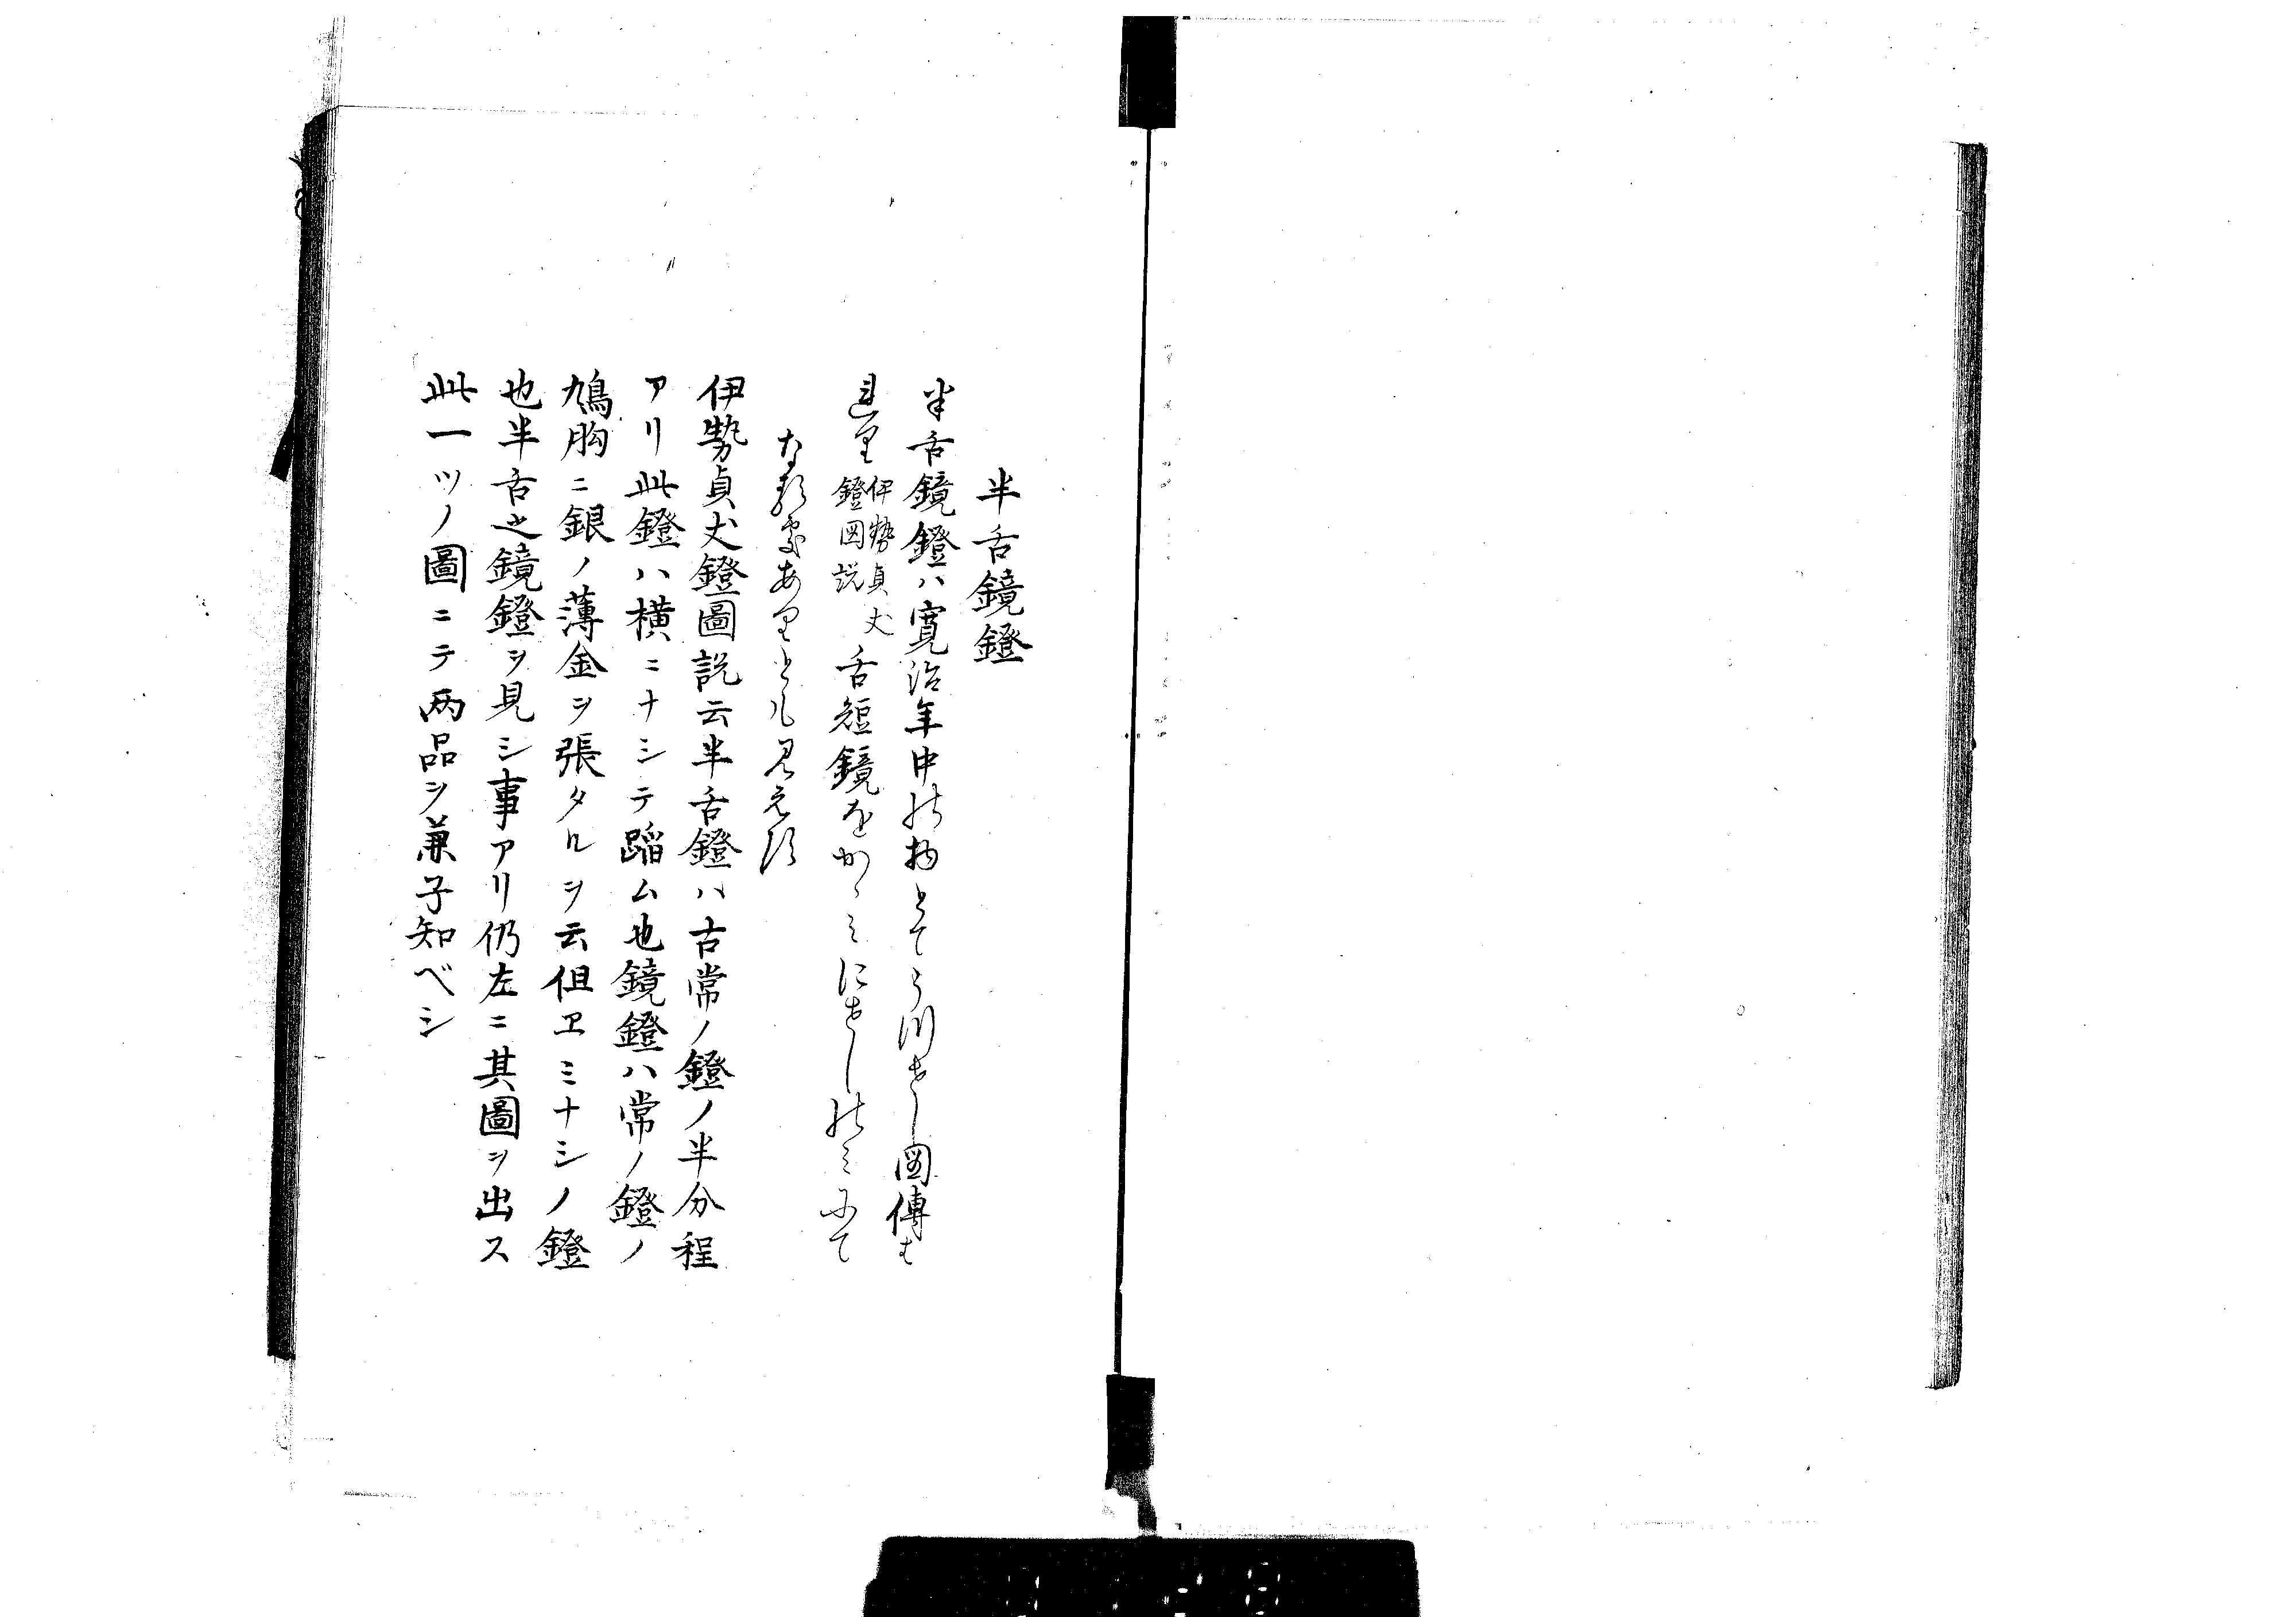 半舌鏡鐙
半舌鏡鐙ハ寛治年中の物とてうつせし図傳は
れり 伊勢貞丈鐙図説 舌短鏡をかゝみにせしのミにて
なる處ありとも見えす
伊勢貞丈鐙圖説云半舌鐙ハ古常ノ鐙ノ半分程
アリ此鐙ハ横ニナシテ蹈ム也鏡鐙ハ常ノ鐙ノ
鳩胸ニ銀ノ薄金ヲ張タルヲ云但ヱミナシノ鐙
也半舌之鏡鐙ヲ見シ事アリ仍左ニ其圖ヲ出ス
此一ツノ圖ニテ两品ヲ兼子知ベシ